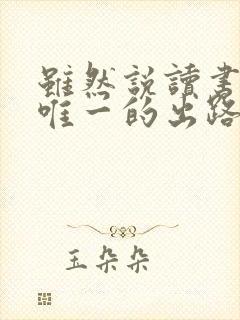 雖然說讀書
唯一的出路
玉朵朵